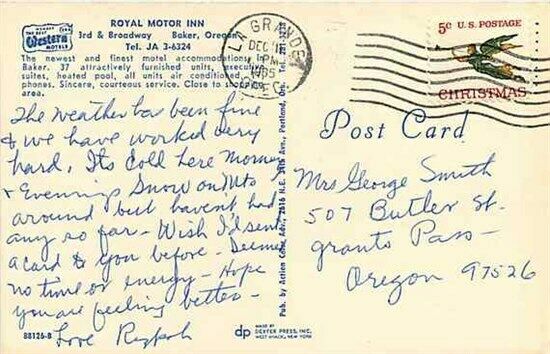 MEMBER
THE BEST
Western
MOTELS
ROYAL MOTOR INN
3rd & Broadway Baker, Oregon
Tel. JA 3-6324
The newest and finest motel accommodations
Baker, 37 attractively furnished units, executive
suites, heated pool, all units air conditioned,
phones. Sincere, courteous service. Close to
area.
The Weather has been fine
& we have worked very
hard. Its cold here Morning
+ Evenings Snow on Mts
around but havent had
any so far - Wish I'd sent
a card to you before - Seemed
no time or energy - Hope
you are feeling better -
Love
88126-B
Pub. by Action Adv., 2016 N.E. Ave., Portland, Ore. Tel.
dp
MADE BY
DEXTER PRESS, INC.
WEST NYACK, NEW YORK
LA GRANDE
DEC
PM
1965
OREG
5¢ U.S. POSTAGE
CHRISTMAS
Post Card
Mrs George Smith
507 Butler St.
grants Pass -
Oregon 97526